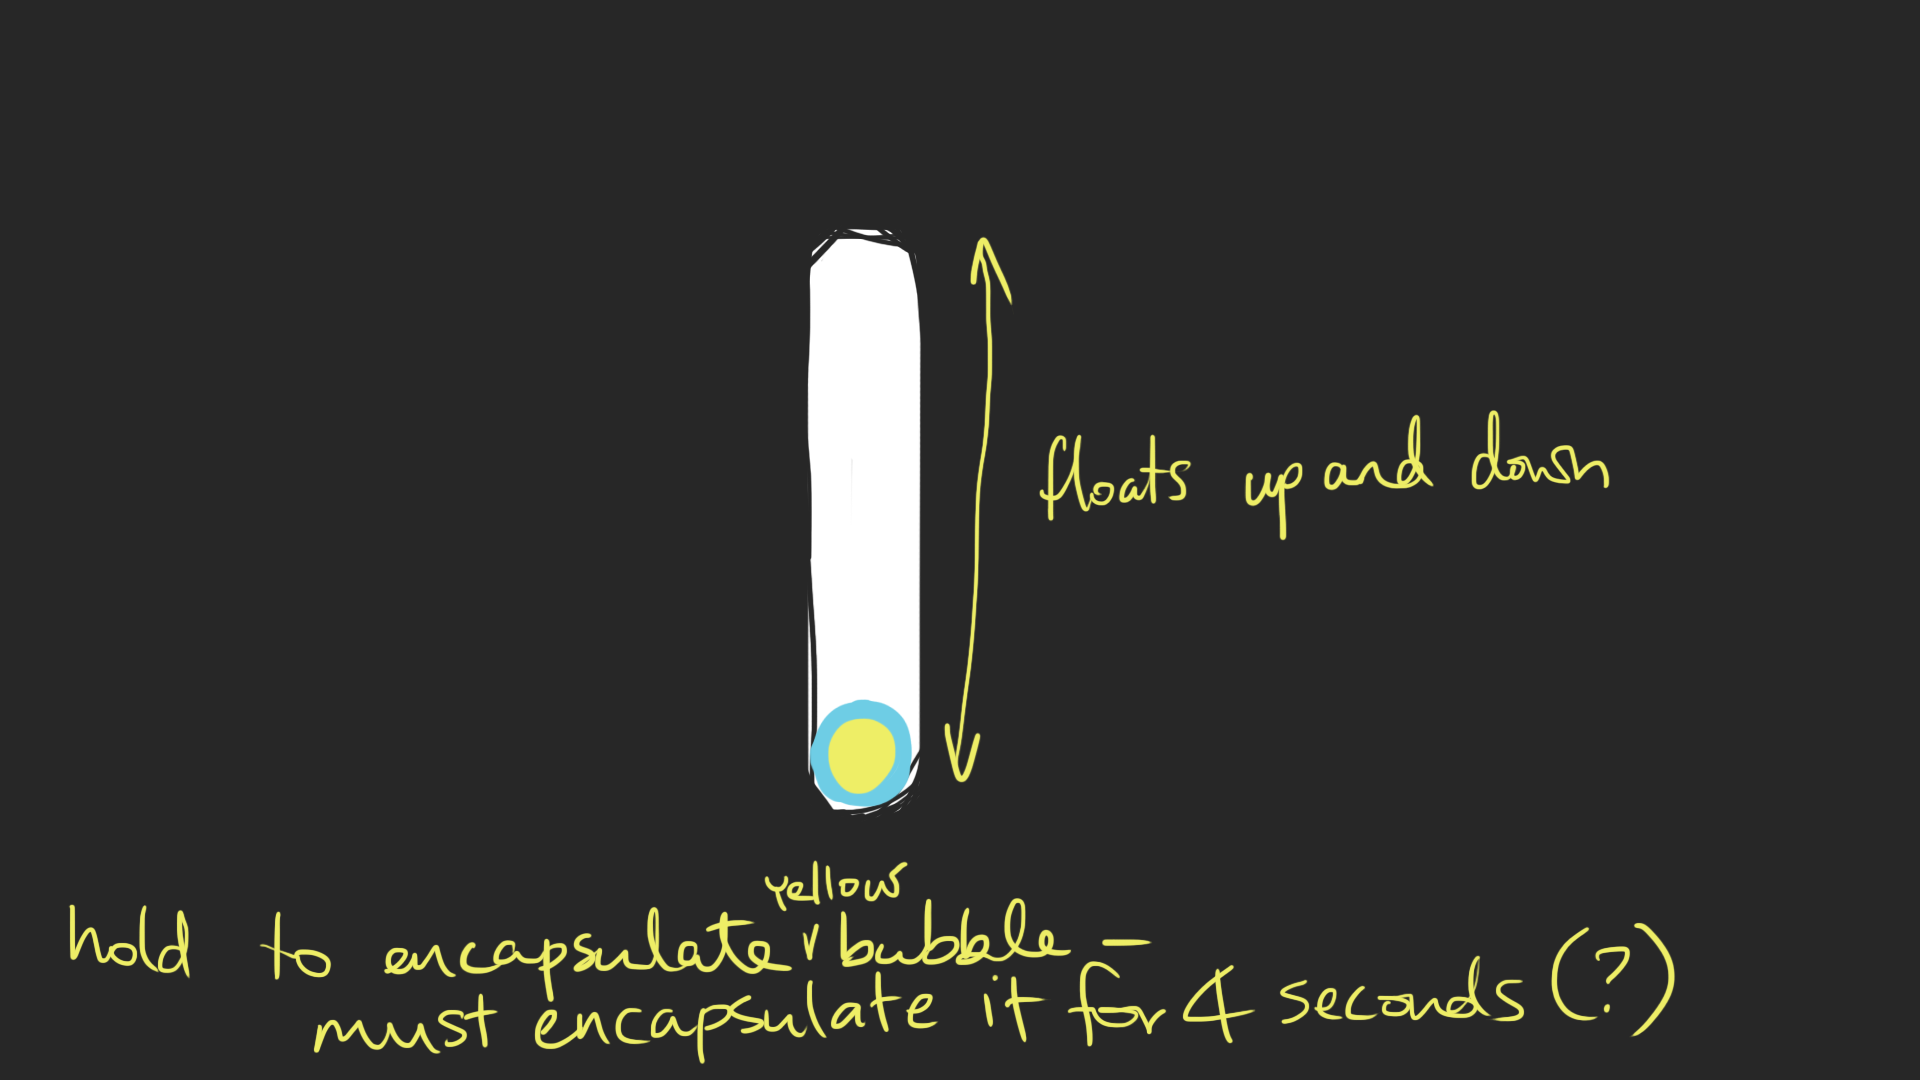 floats up and down
yellow
hold to encapsulate bubble -
must encapsulate it for 4 seconds (?)